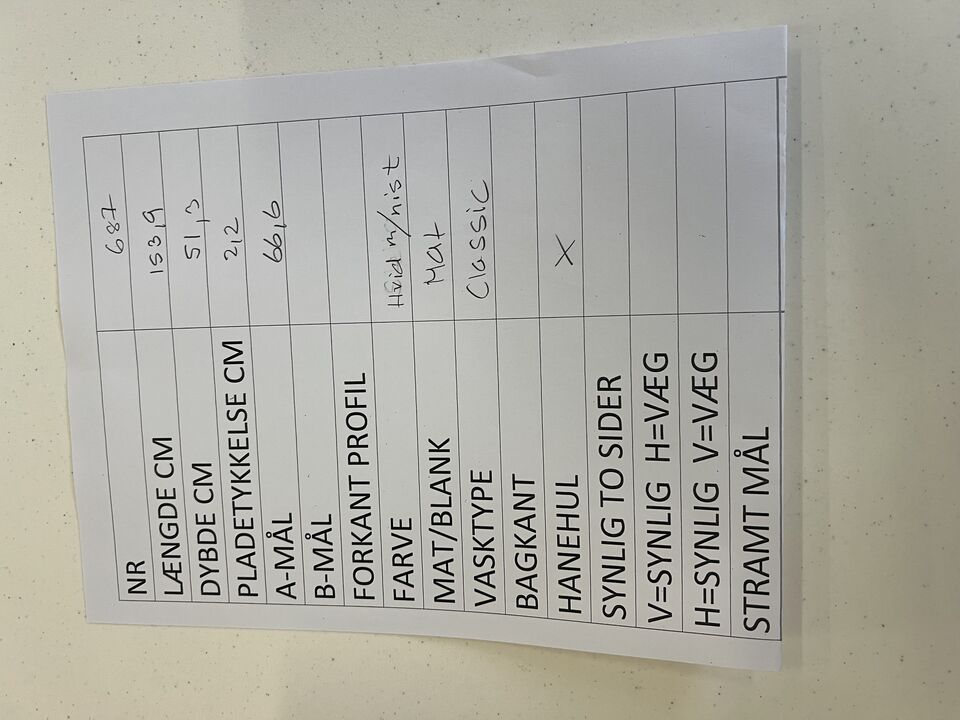 NR 687
LÆNGDE CM 153,9
DYBDE CM 51,3
PLADETYKKELSE CM 2,2
A-MÅL 66,6
B-MÅL
FORKANT PROFIL
FARVE Hvid m/nist
MAT/BLANK Mat
VASKTYPE Classic
BAGKANT
HANEHUL X
SYNLIG TO SIDER
V=SYNLIG H=VÆG
H=SYNLIG V=VÆG
STRAMT MÅL